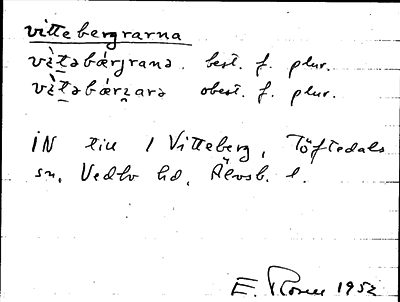 vittebergrarna
vìt̲əbǽrjranə. best. f. plur.
vìt̲əbǽrʐarə obest. f. plur.

IN till 1 Vitteberg, Töftedals
sn, Vedbo hd, Älvsb. l.

E. Rosell 1952